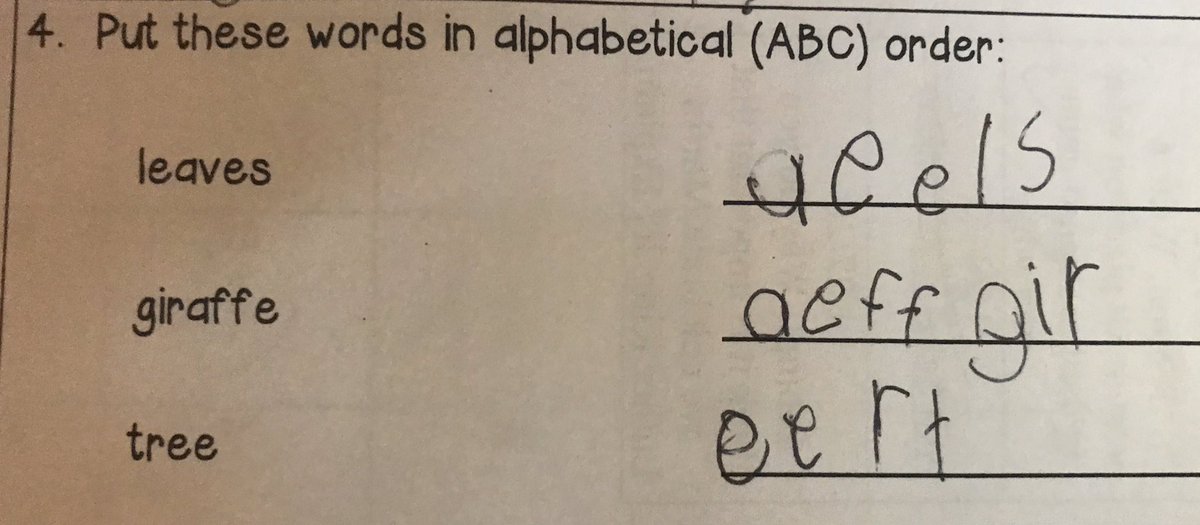 4. Put these words in alphabetical (ABC) order:
leaves aeels
giraffe aeffgir
tree eert